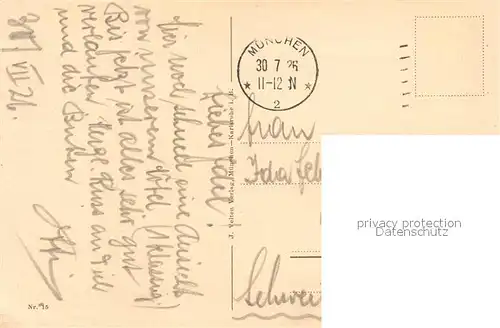 30/VII 26.
Liebes Idali!
Hier noch schnell eine Ansicht
von unserem Hotel (Klassig!)
Bis jetzt ist alles sehr gut
verlaufen. Herzl. Kuss an dich
und die Buben
MÜNCHEN
30 7 26
11-12 N
2
Frau
Ida
Schwei
J. Velten Verlag, München-Karlsruhe i. B.
Nr. 15
privacy protection
Datenschutz